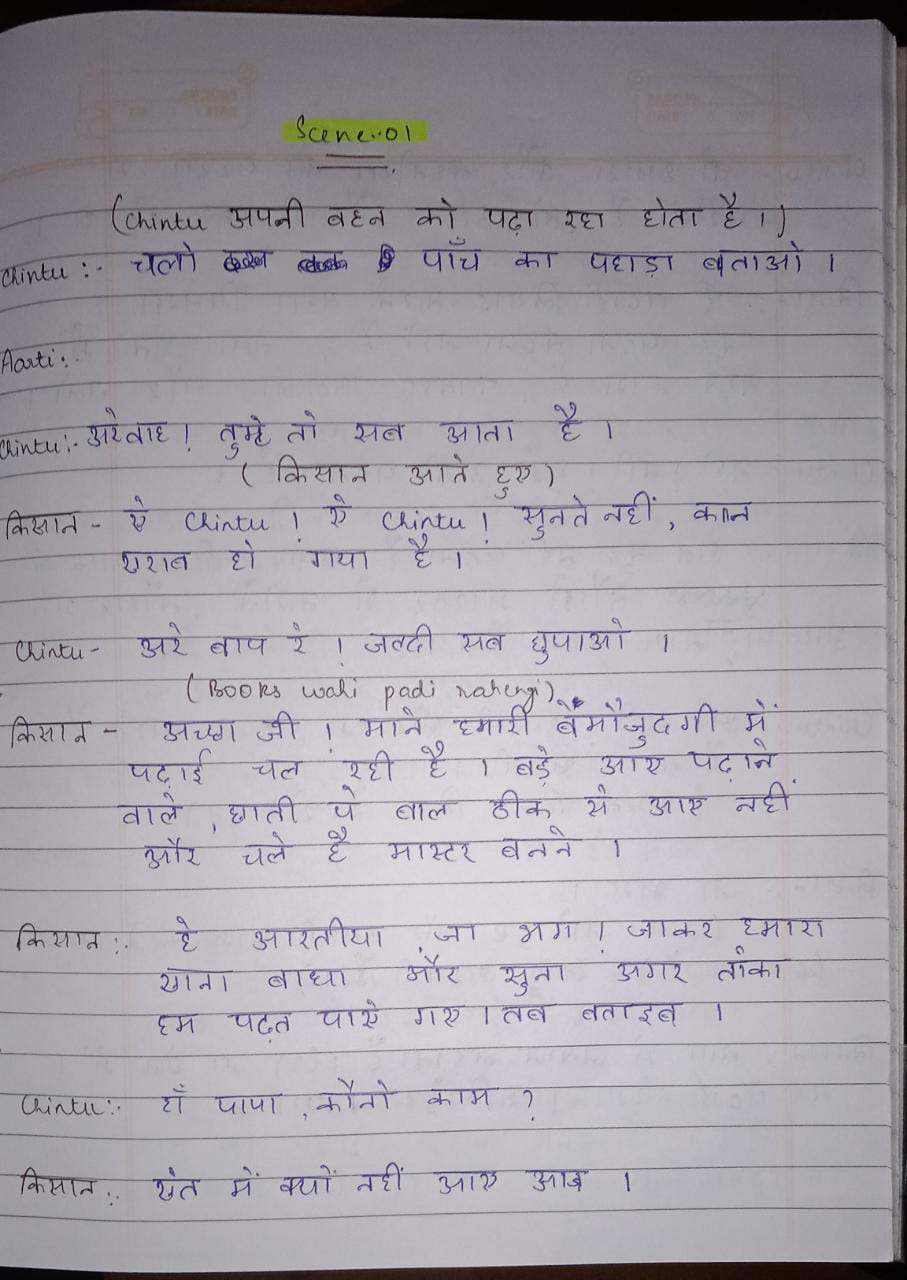 Scene..01
(Chintu अपनी बहन को पढ़ा रहा होता है।)
Chintu :- चलो पाँच का पहाड़ा बताओ ।
Aarti :-
Chintu :- अरेवाह ! तुम्हे तो सब आता है ।
( किसान आते हुए )
किसान - ऐ Chintu ! ऐ Chintu ! सुनते नहीं , कान
खराब हो गया है ।
Chintu - अरे बाप रे ! जल्दी सब छुपाओ ।
( Books wahi padi rahengi)
किसान - अच्छा जी ! माने हमारी बेमौजुदगी में
पढ़ाई चल रही है । बड़े आए पढ़ाने
वाले , छाती पे बाल ठीक से आए नहीं
और चले है मास्टर बनने ।
किसान :- हे आरतीया , जा भाग । जाकर हमारा
खाना बाधा और सुना अगर तोंका
हम पढ़त पाऐ गए । तब बताइब ।
Chintu :- हाँ पापा , कौनो काम ?
किसान :- खेत में क्यों नहीं आए आज ।